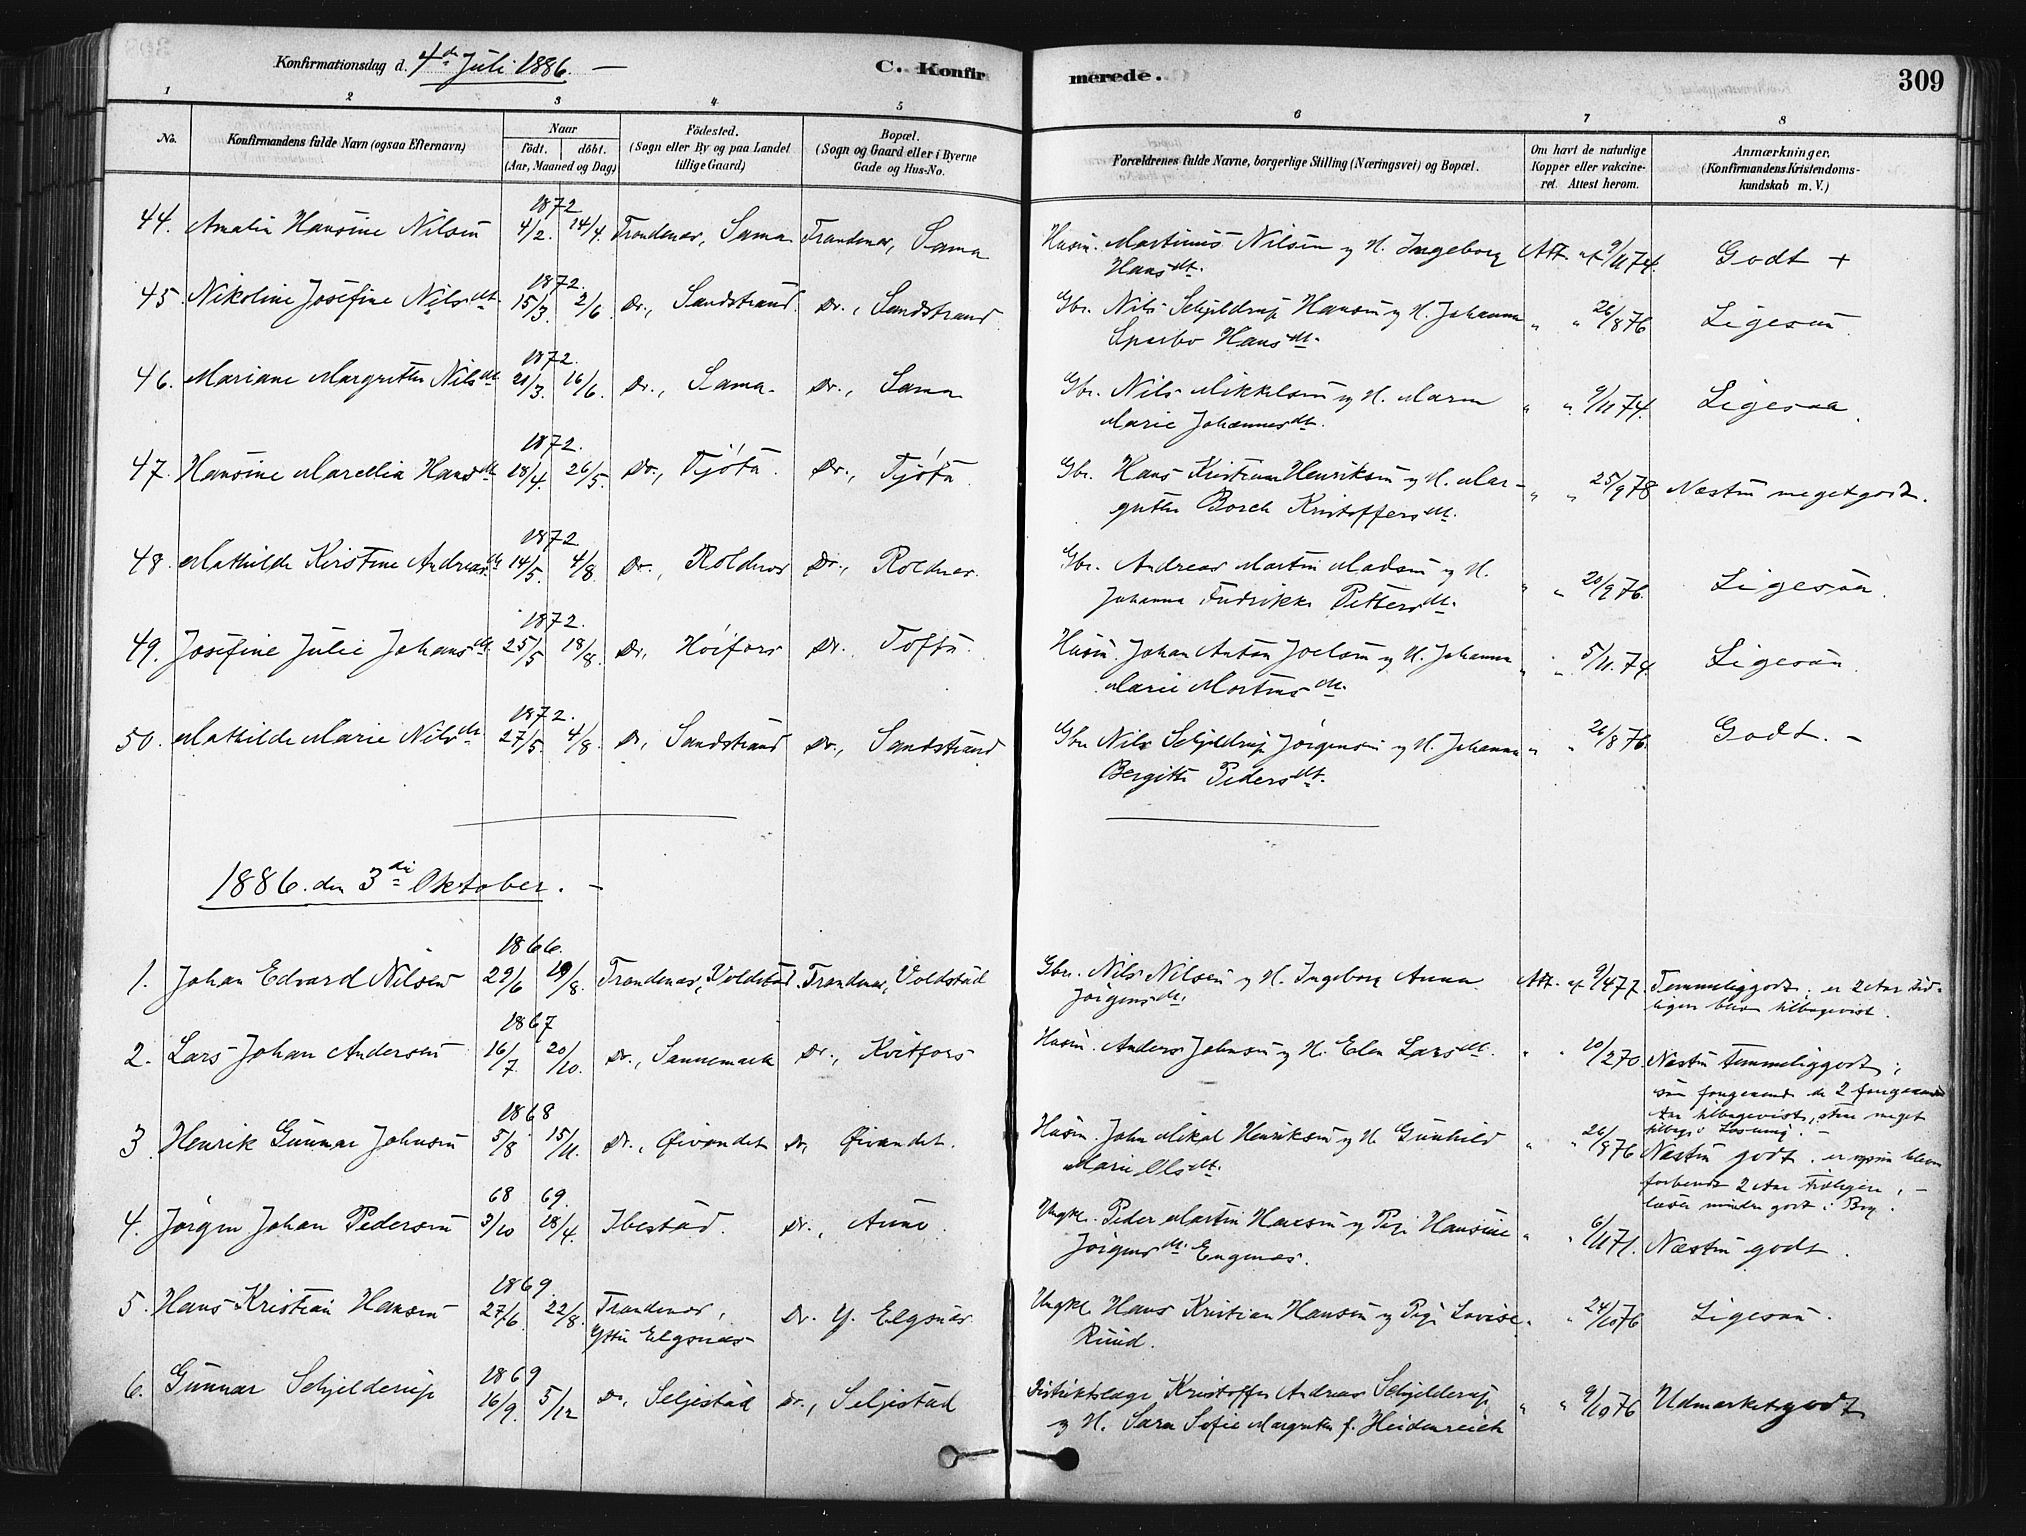 Konfirmationsdag d. 4de Juli 1886. —
C. Konfir
merede.
309
1 2 3 4 5 6 7 8
No. Konfirmandens fulde Navn (ogsaa Efternavn) Naar födt. döbt. (Aar, Maaned og Dag) Födested. (Sogn eller By og paa Landet tillige Gaard) Bopæl. (Sogn og Gaard eller i Byerne Gade og Hus-No. Forældrenes fulde Navne, borgerlige Stilling (Næringsvei) og Bopæl. Om havt de naturlige Kopper eller vakcineret. Attest herom. Anmærkninger. (Konfirmandens Kristendomskundskab m. V.)
1872
44. Amalia Hansine Nilsen 4/2. 14/4. Trondenæs, Sama Trondenæs, Sama Husm. Martinus Nilsen og H. Ingeborg Att. af 9/11 74. Godt +
Hansdt.
1872.
45 Nikoline Josefine Nilsdt. 15/3. 2/6 Do., Sandstrand. Do., Sandstrand. Gbr. Nils Schjeldrup Hansen og H. Johanna " " 26/8 76 Ligesaa
Sparbo Hansdt.
1872.
46. Mariane Margrethe Nilsdt 21/3. 16/6. Do., Sama. Do., Sama Gbr. Nils Mikkelsen og H. Maren " " 9/11 74. Ligesaa.
Marie Johannesdt.
1872.
47. Hansine Marellia Hansdt 18/4. 26/5. Do., Tjøtta. Do., Tjøtta. Gbr. Hans Kristian Henriksen og H. Mar- " " 25/9 78 Næsten meget godt.
grethe Borch Kristoffersdt.
1872
48. Mathilde Kirstine Andreasdt 14/5. 4/8. Do., Roldnes Do., Roldnes. Gbr. Andreas Martin Madsen og H. " " 20/9 76. Ligesaa.
Johanna Fredrikke Pettersdt.
1872.
49. Josefine Julie Johansdt. 25/5 18/8. Do, Høifors Do. Tofta. Husm. Johan Anton Joelsen og H. Johanna " " 5/11. 74. Ligesaa.
Marie Mortensdt.
1872.
50. Mathilde Marie Nilsdt. 27/5. 4/8. Do, Sandstrand Do., Sandstrand Gbr. Nils Schjeldrup Jørgensen og H. Johanna " " 26/8 76. Godt. —
Bergitte Pedersdt.
1886. den 3die Oktober. —
1866.
1. Johan Edvard Nilsen 29/6 19/8. Trondenæs, Voldstad. Trondenæs, Voldstad Gbr. Nils Nilsen og H. Ingeborg Anna Att. af 9/4 77. Temmeliggodt. er 2 Aar tid-
Jørgensdt. ligere blev tilbagevist.
1867
2. Lars Johan Andersen 16/7. 20/10. Do., Sannemark Do., Kvitfors Husm. Anders Johnsen og H. Elen Larsdt. " " 10/2 70. Næsten temmeliggodt;
de 2 foregaaende
Aar tilbagevist, meget
tilbage i Læsning. —
1868
3 Henrik Gunnar Johnsen 5/8. 15/11. Do., Øivandet Do, Øivandet. Husm. John Mikal Henriksen og H Gunhild " " 26/8 76 Næsten godt. er blevn
Marie Olsdt. 2 Aar tidligere; —
læser mindre godt i Bog.
68 69.
4. Jørgen Johan Pedersen 3/10 18/4. Ibestad. Do., Aune. Ungkl. Peder Martin og Pige Hansine " " 6/11 71. Næsten godt.
Jørgensdt. Engenæs.
1869.
5. Hans Kristian Hansen 27/6. 22/8. Trondenæs, Do. Y. Elgsnæs. Ungkl Hans Kristian Hansen og Pige Lovise " " 24/10 76 Ligesaa.
Yttre Elgsnæs Ruud.
1869
6. Gunnar Schjelderup 16/9. 5/12 Do, Seljestad Do., Seljestad Distriktslæge Kristoffer Andreas Schjelderup " " 9/10 76 Udmærketgodt
og H. Sara Sofie Margrethe f. Heidenreich